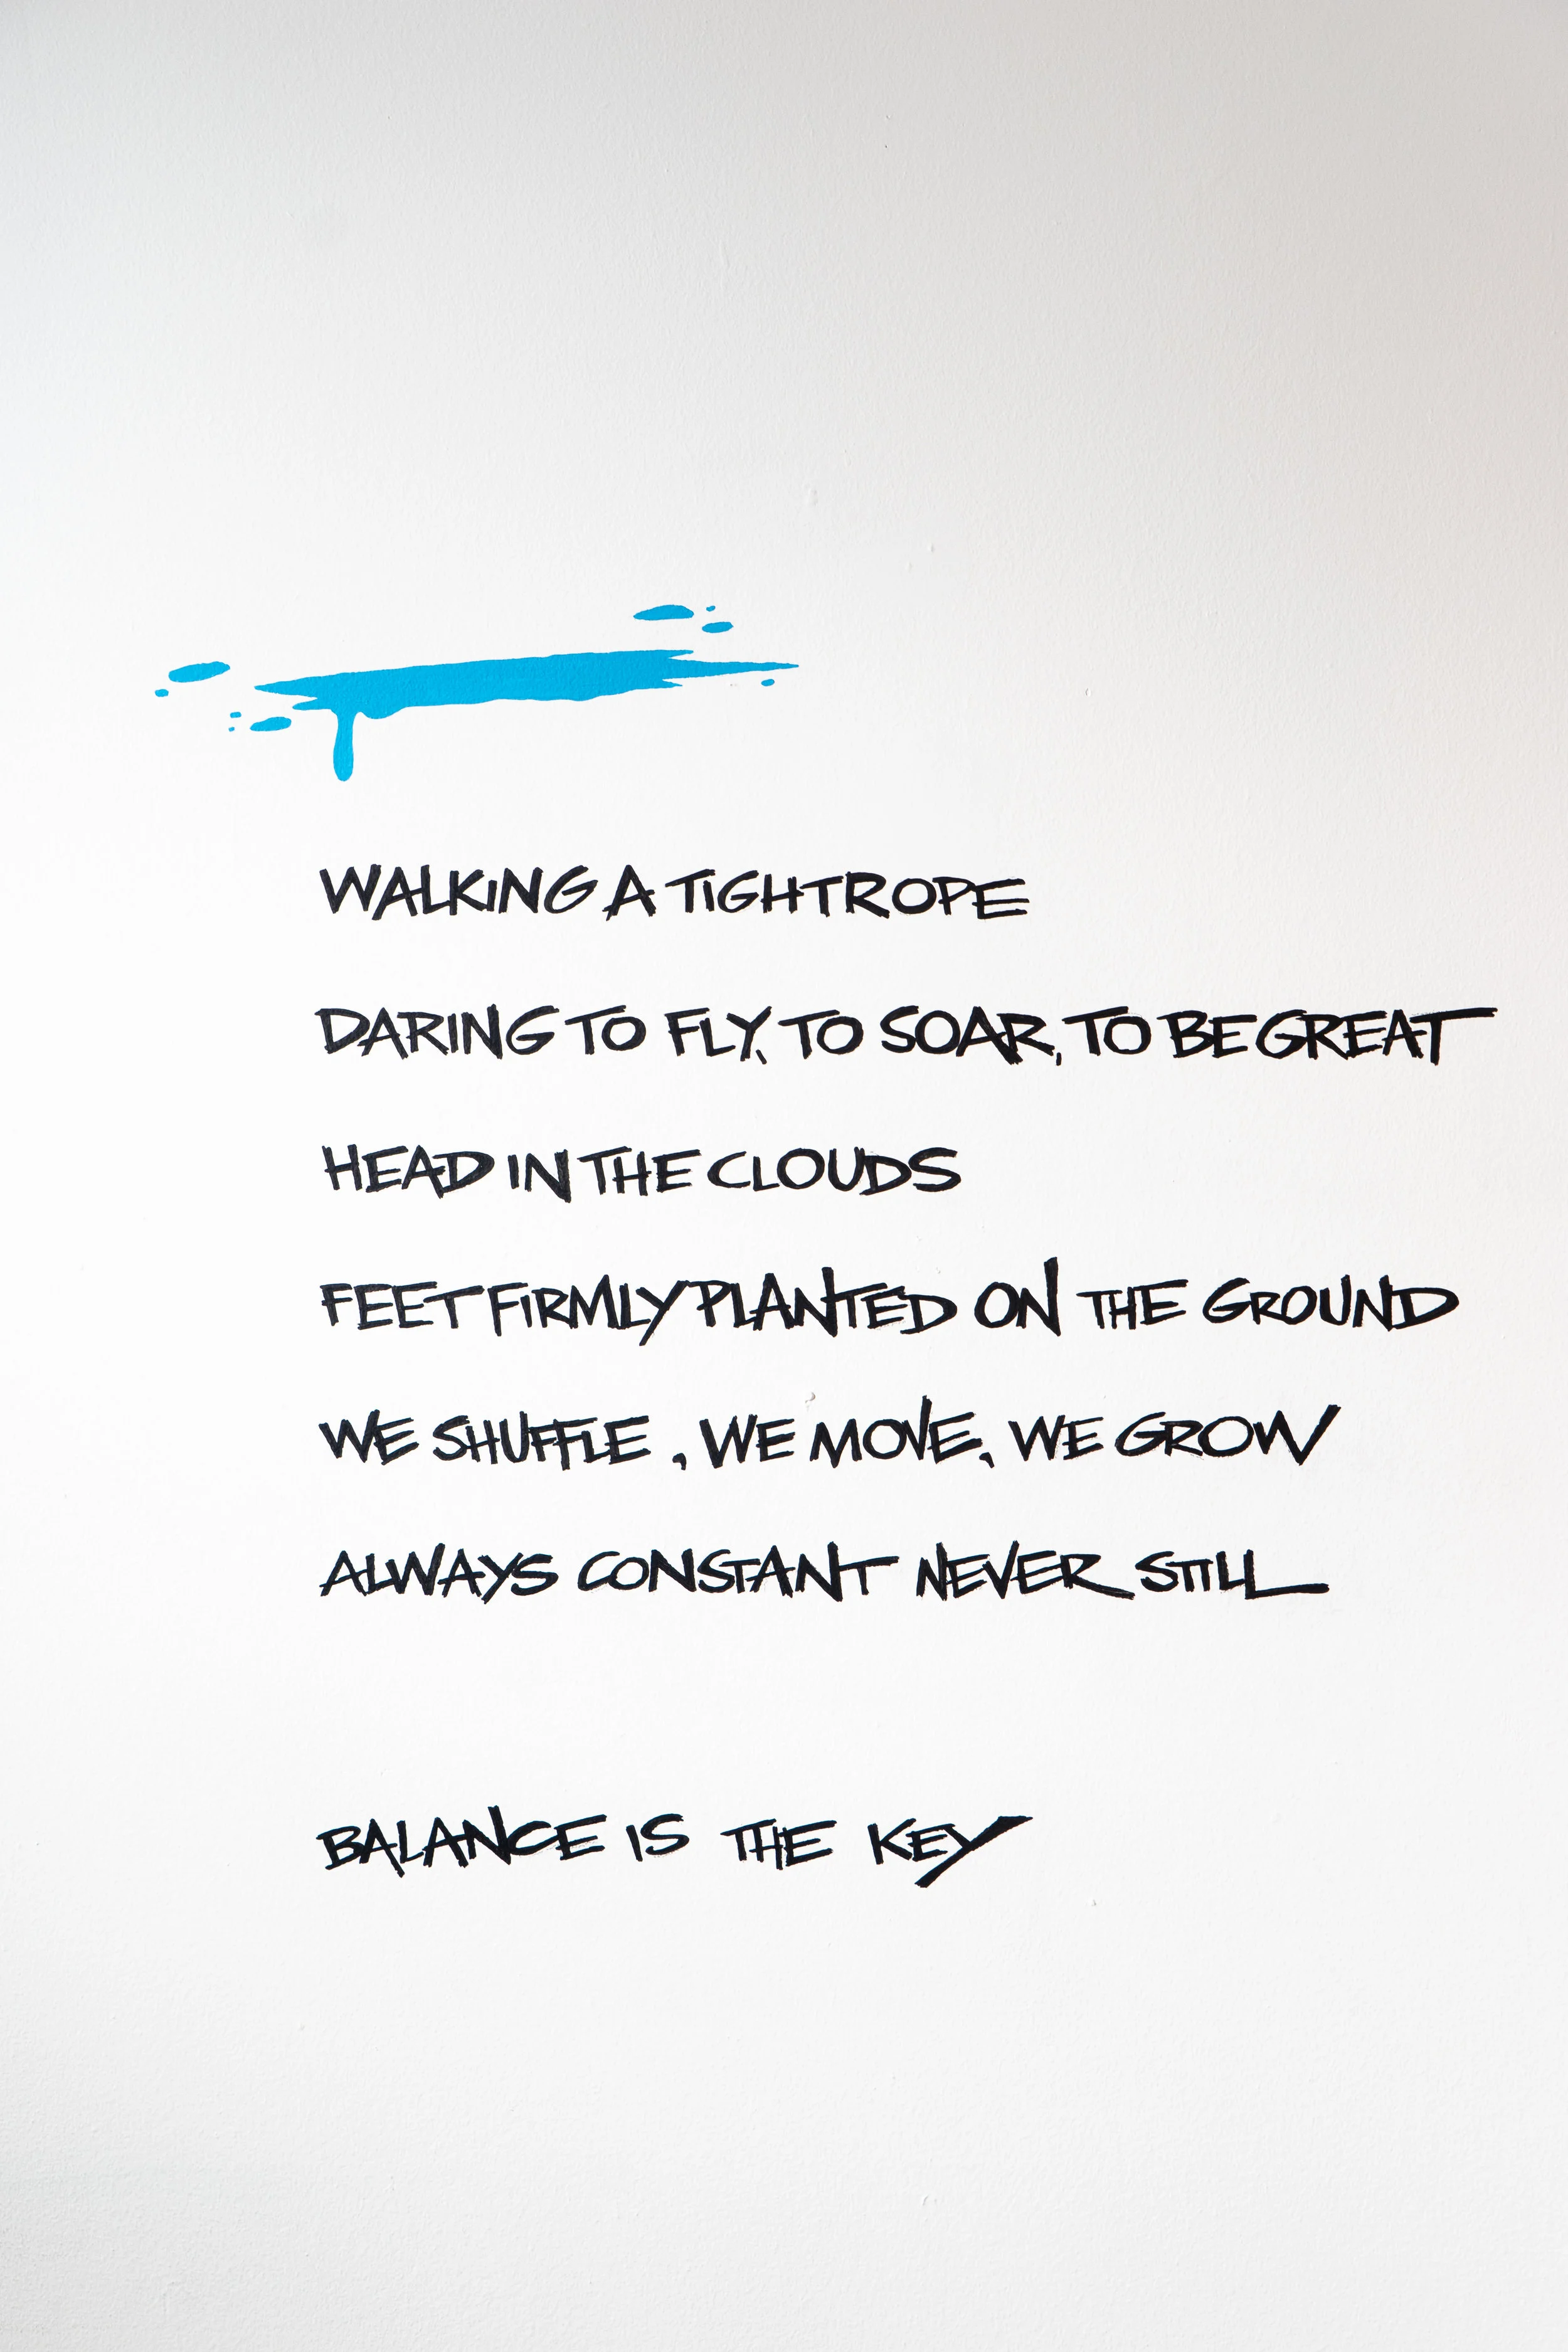 WALKING A TIGHTROPE
DARING TO FLY, TO SOAR, TO BE GREAT
HEAD IN THE CLOUDS
FEET FIRMLY PLANTED ON THE GROUND
WE SHUFFLE , WE MOVE, WE GROW
ALWAYS CONSTANT NEVER STILL
BALANCE IS THE KEY